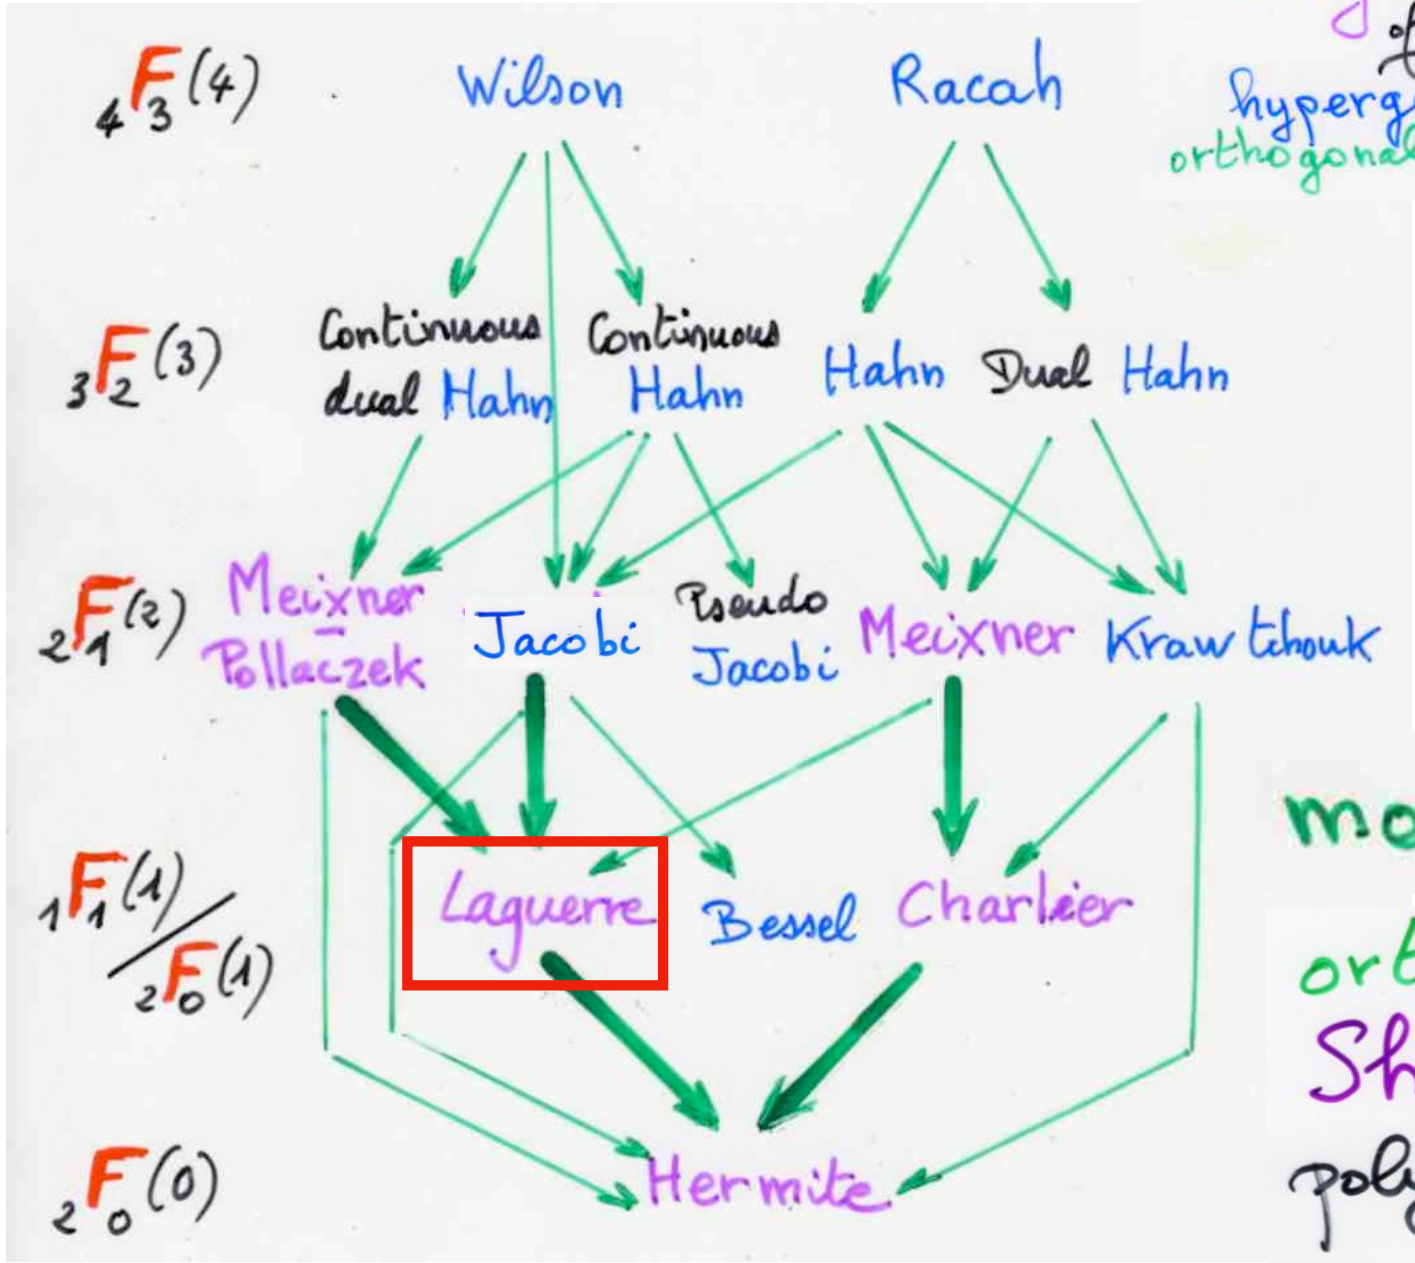 4F3(4) Wilson Racah
of
hyperg
orthogonal
3F2(3) Continuous dual Hahn Continuous Hahn Hahn Dual Hahn
2F1(2) Meixner - Pollaczek Jacobi Pseudo Jacobi Meixner Krawtchouk
mo
1F1(1) / 2F0(1) Laguerre Bessel Charlier
ort
Sh
2F0(0) Hermite
poly